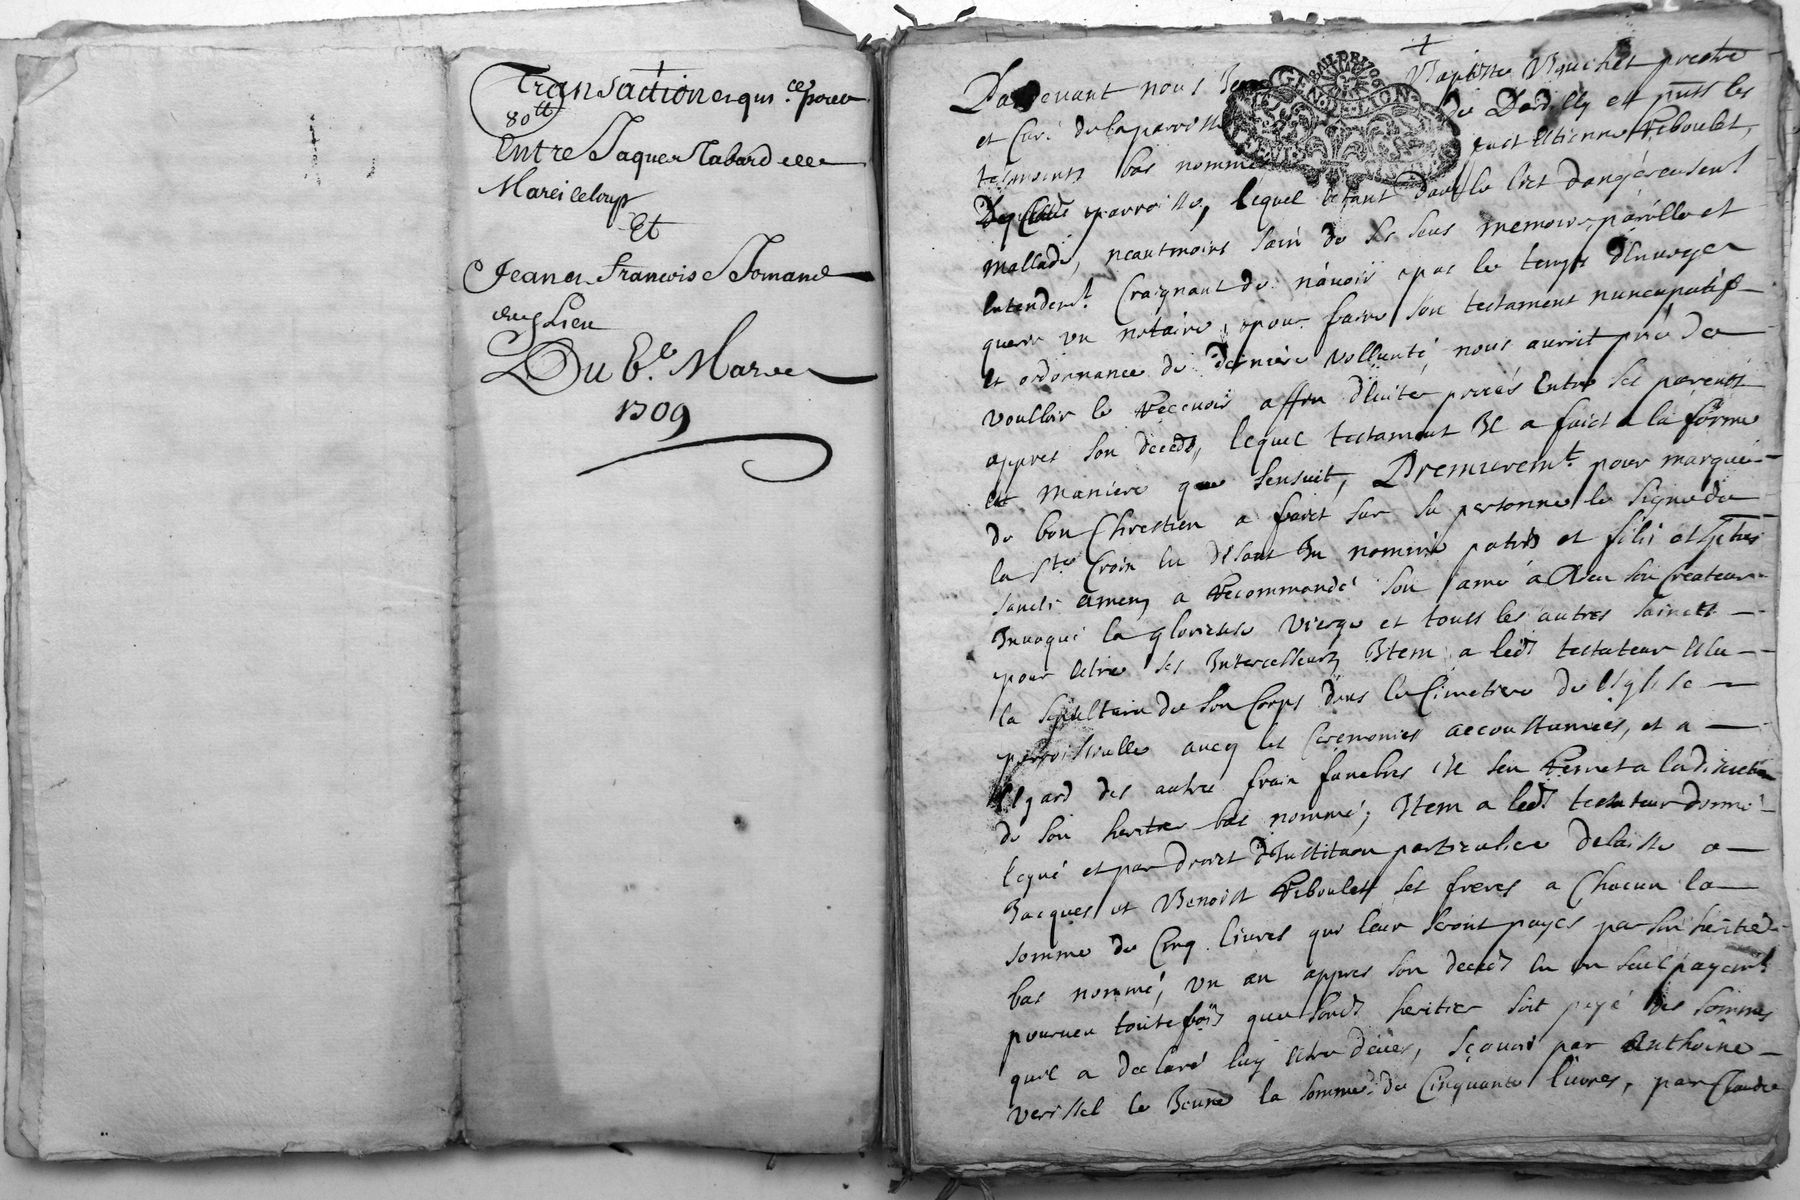 Transaction et quit.ce pour
80tt
Entre Jaques Tabard
Et
Jeane francois Jomand
dud Lieu
Du 6.e Mars
1709
Pardevant nous Jean Baptiste prestre
et Curé de la parroisse de Dardilly et puts les
tesmoins bas nommes fuct Estienne Reboulet,
parroisse, lequel estant dans le lict dangereusent
mallade, neantmoins sain de ses sens memoire, parolle et
Entendemt. Craignant de n'avoir pas le temps d'Envoyer
querir un notaire, pour faire son testament nuncupatif
et ordonnance de derniere vollunté nous auroit prié de
voulloir le recevoir affin d'Eviter procés Entre ses parents
appres son deceds, lequel testament Il a faict a la forme
et maniere que sensuit, Premieremt. pour marque
de bon Chrestien a faict sur sa personne le signe de
la Ste Croix En disant In nomine patris et filii et sptus
sancti amen, a recommandé son ame a Dieu son Createur
Invoqué la glorieuse vierge et touts les autres saincts
pour estre ses Intercesseurs Item a led testateur Eslu
la sepulture de son Corps dans le Cimetiere de l'Eglise
parroissialle avecq les Ceremonies accoustumées, et a
l'Egard des autre frais funebres Il s'en remet a la discretion
de son heritier bas nommé; Item a led testateur donné
legué et par droict d'Institaon particuliere delaissé a
Jacques et Benoist Reboulet ses freres a Chacun la
somme de Cinq livres qui leur seront payés par son heritier
bas nommé, un an appres son deceds en un seul payemt
pourveu toutefois que sond heritier soit payé des sommes
quil a declaré luy estre deües, sçavoir par Anthoine
verissel le Jeune la somme de Cinquante livres, par Claude